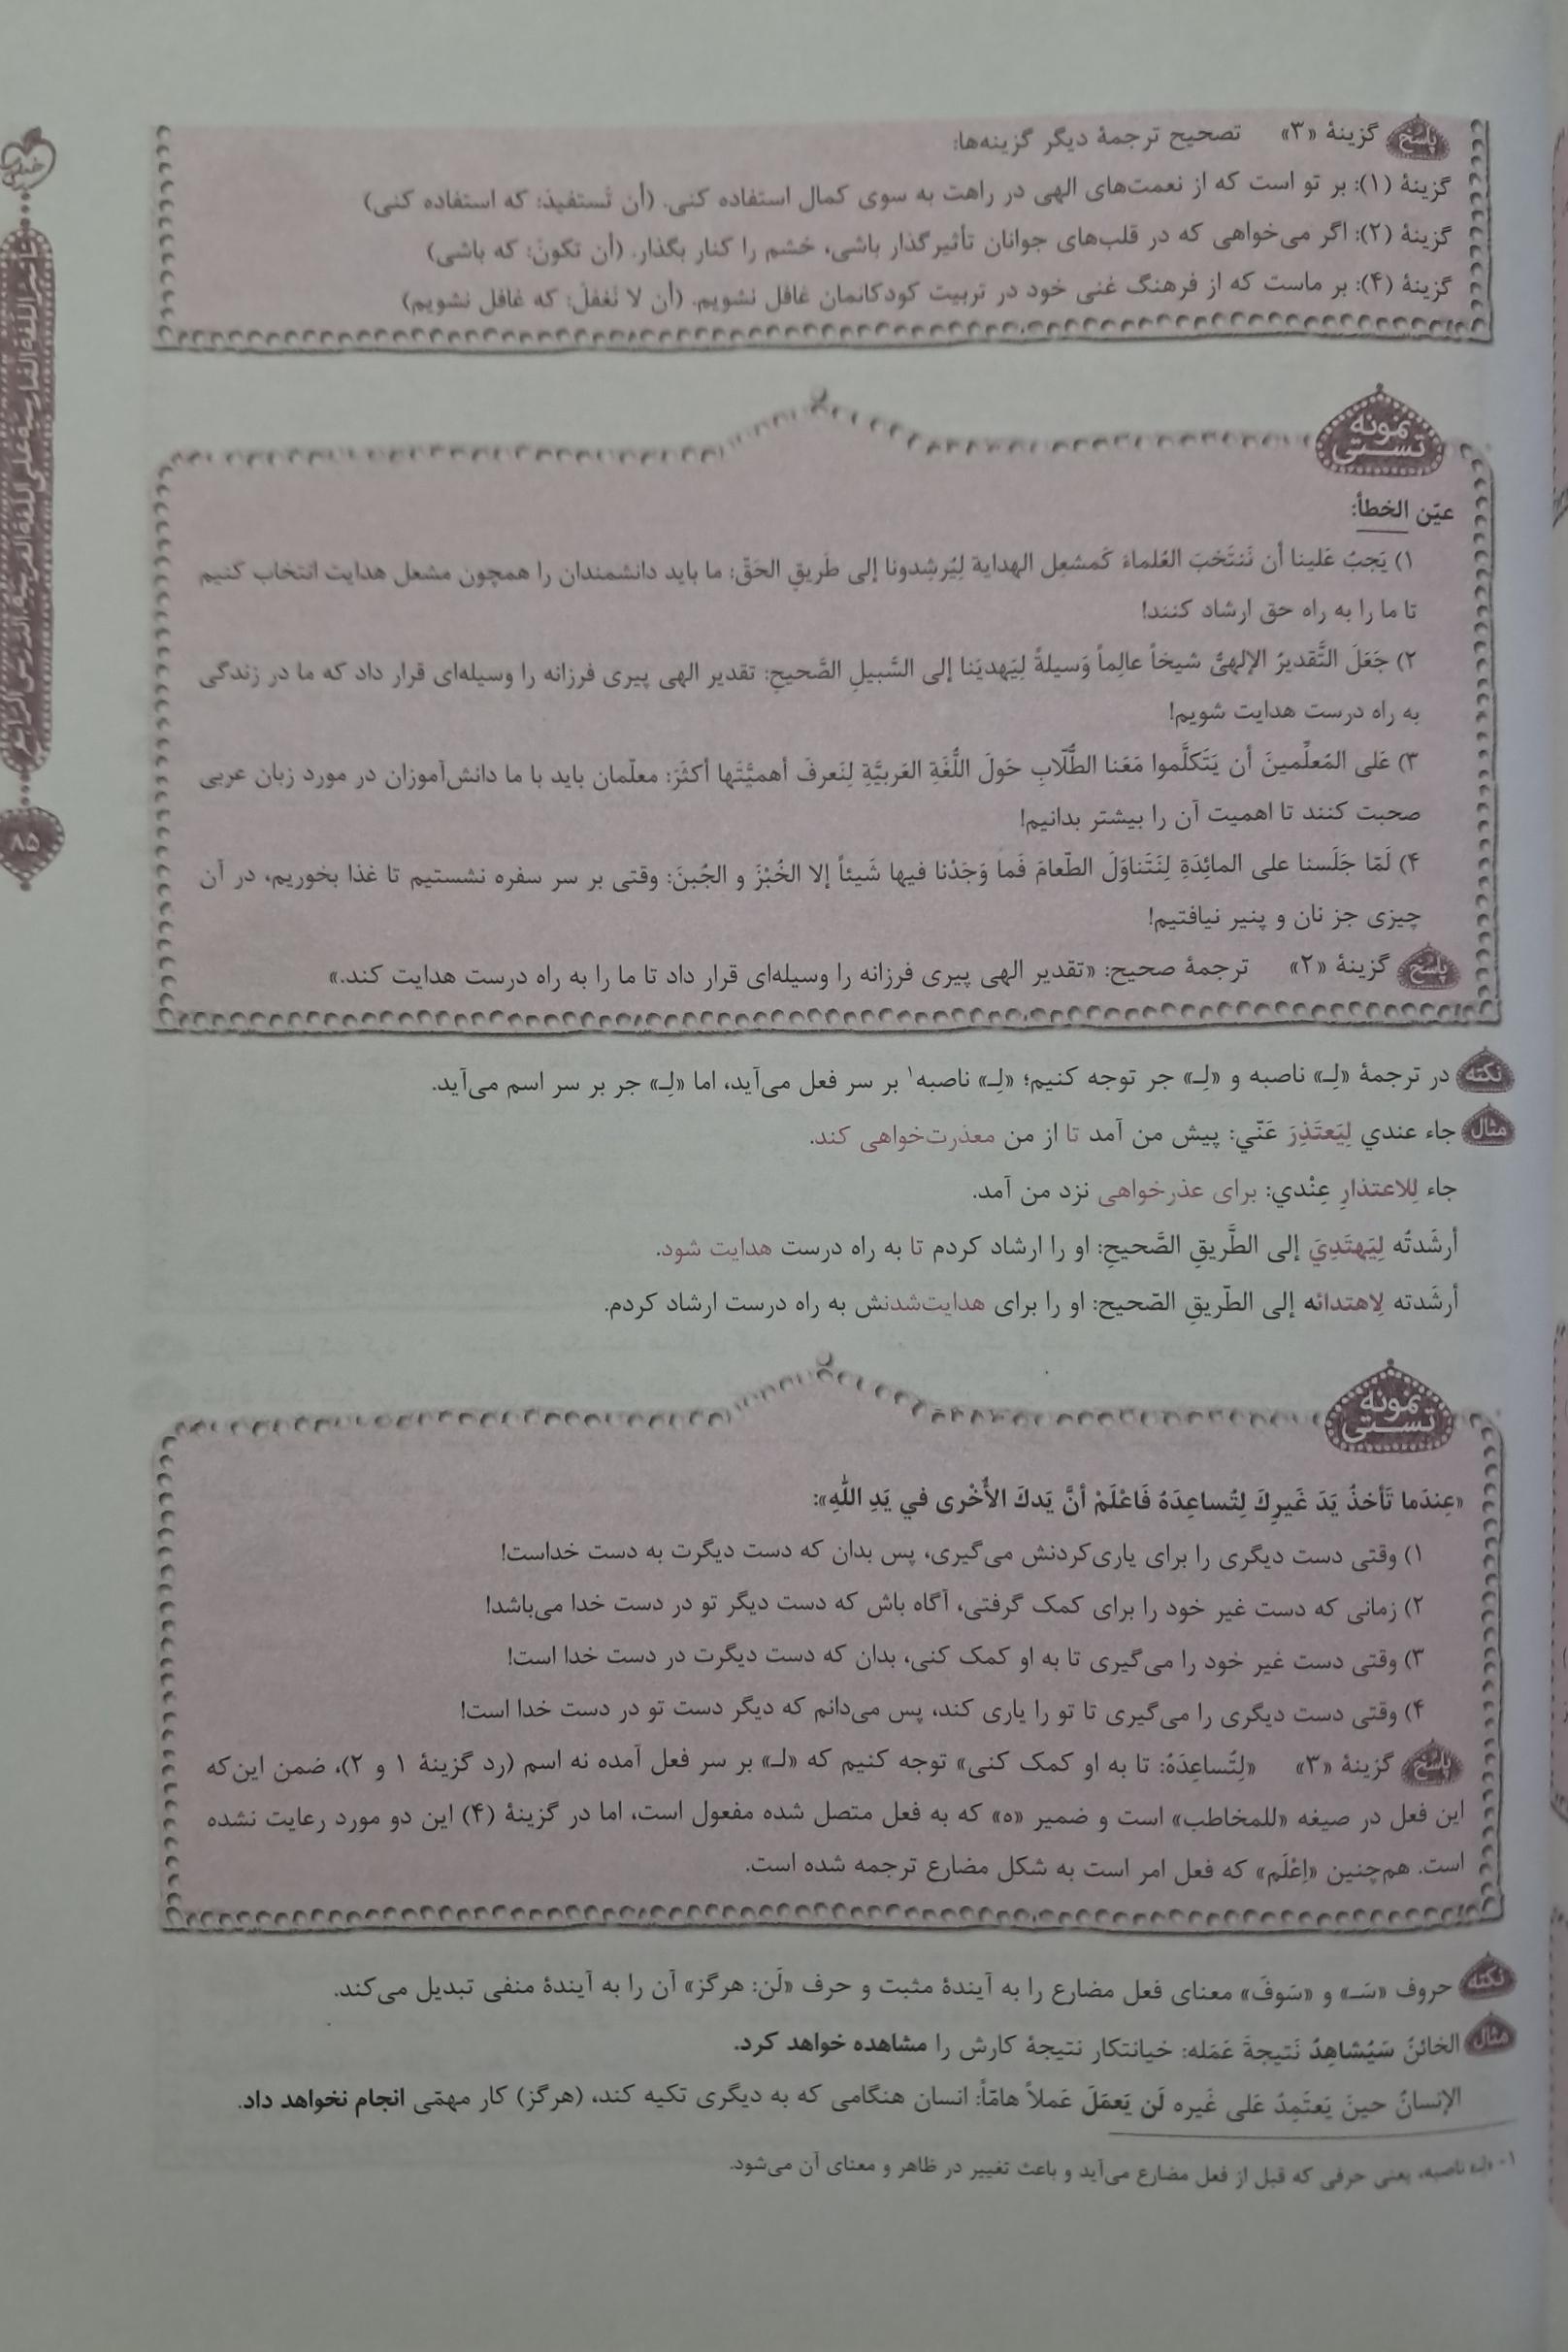 پاسخ گزینهٔ «۳» تصحیح ترجمهٔ دیگر گزینه‌ها:
گزینهٔ (۱): بر تو است که از نعمت‌های الهی در راهت به سوی کمال استفاده کنی. (أن تَستفیدَ: که استفاده کنی)
گزینهٔ (۲): اگر می‌خواهی که در قلب‌های جوانان تأثیرگذار باشی، خشم را کنار بگذار. (أن تکونَ: که باشی)
گزینهٔ (۴): بر ماست که از فرهنگ غنی خود در تربیت کودکانمان غافل نشویم. (أن لا نَغفلَ: که غافل نشویم)
نمونه تستی
عیّن الخطأ:
۱) یَجِبُ عَلینا أن نَنتَخبَ العُلماءَ کَمشعِل الهدایة لِیُرشِدونا إلی طَریقِ الحَقّ: ما باید دانشمندان را همچون مشعل هدایت انتخاب کنیم
تا ما را به راه حق ارشاد کنند!
۲) جَعَلَ التَّقدیرُ الإلهيُّ شیخاً عالِماً وَسیلةً لِیَهدیَنا إلی السَّبیلِ الصَّحیحِ: تقدیر الهی پیری فرزانه را وسیله‌ای قرار داد که ما در زندگی
به راه درست هدایت شویم!
۳) عَلی المُعلِّمینَ أن یَتَکلَّموا مَعَنا الطُّلّابِ حَولَ اللُّغَةِ العَربیَّةِ لِنَعرفَ أهمیَّتَها أکثَرَ: معلّمان باید با ما دانش‌آموزان در مورد زبان عربی
صحبت کنند تا اهمیت آن را بیشتر بدانیم!
۴) لَمّا جَلَسنا علی المائِدَةِ لِنَتَناوَلَ الطّعامَ فَما وَجَدْنا فیها شَیئاً إلا الخُبْزَ و الجُبنَ: وقتی بر سر سفره نشستیم تا غذا بخوریم، در آن
چیزی جز نان و پنیر نیافتیم!
پاسخ گزینهٔ «۲» ترجمهٔ صحیح: «تقدیر الهی پیری فرزانه را وسیله‌ای قرار داد تا ما را به راه درست هدایت کند.»
نکته در ترجمهٔ «لِـ» ناصبه و «لِـ» جر توجه کنیم؛ «لِـ» ناصبه۱ بر سر فعل می‌آید، اما «لِـ» جر بر سر اسم می‌آید.
مثال جاء عندي لِیَعتَذِرَ عَنّي: پیش من آمد تا از من معذرت‌خواهی کند.
جاء لِلاعتذارِ عِنْدي: برای عذرخواهی نزد من آمد.
أرشَدتُه لِیَهتَدِيَ إلی الطَّریقِ الصَّحیحِ: او را ارشاد کردم تا به راه درست هدایت شود.
أرشَدته لِاهتدائه إلی الطّریقِ الصّحیح: او را برای هدایت‌شدنش به راه درست ارشاد کردم.
نمونه تستی
«عِندَما تَأخذُ یَدَ غَیرِكَ لِتُساعِدَهُ فَاعْلَمْ أنَّ یَدكَ الأُخْری في یَدِ اللّهِ»:
۱) وقتی دست دیگری را برای یاری‌کردنش می‌گیری، پس بدان که دست دیگرت به دست خداست!
۲) زمانی که دست غیر خود را برای کمک گرفتی، آگاه باش که دست دیگر تو در دست خدا می‌باشد!
۳) وقتی دست غیر خود را می‌گیری تا به او کمک کنی، بدان که دست دیگرت در دست خدا است!
۴) وقتی دست دیگری را می‌گیری تا تو را یاری کند، پس می‌دانم که دیگر دست تو در دست خدا است!
پاسخ گزینهٔ «۳» «لِتُساعِدَهُ: تا به او کمک کنی» توجه کنیم که «لـ» بر سر فعل آمده نه اسم (رد گزینهٔ ۱ و ۲)، ضمن این‌که
این فعل در صیغه «للمخاطب» است و ضمیر «ه» که به فعل متصل شده مفعول است، اما در گزینهٔ (۴) این دو مورد رعایت نشده
است. هم‌چنین «اِعْلَم» که فعل امر است به شکل مضارع ترجمه شده است.
نکته حروف «سَـ» و «سَوفَ» معنای فعل مضارع را به آیندهٔ مثبت و حرف «لَن: هرگز» آن را به آیندهٔ منفی تبدیل می‌کند.
مثال الخائنُ سَیُشاهِدُ نَتیجةَ عَمَله: خیانتکار نتیجهٔ کارش را مشاهده خواهد کرد.
الإنسانُ حینَ یَعتَمِدُ عَلی غَیره لَن یَعمَلَ عَملاً هامّاً: انسان هنگامی که به دیگری تکیه کند، (هرگز) کار مهمّی انجام نخواهد داد.
۱- ناصبه، یعنی حرفی که قبل از فعل مضارع می‌آید و باعث تغییر در ظاهر و معنای آن می‌شود.
۸۵